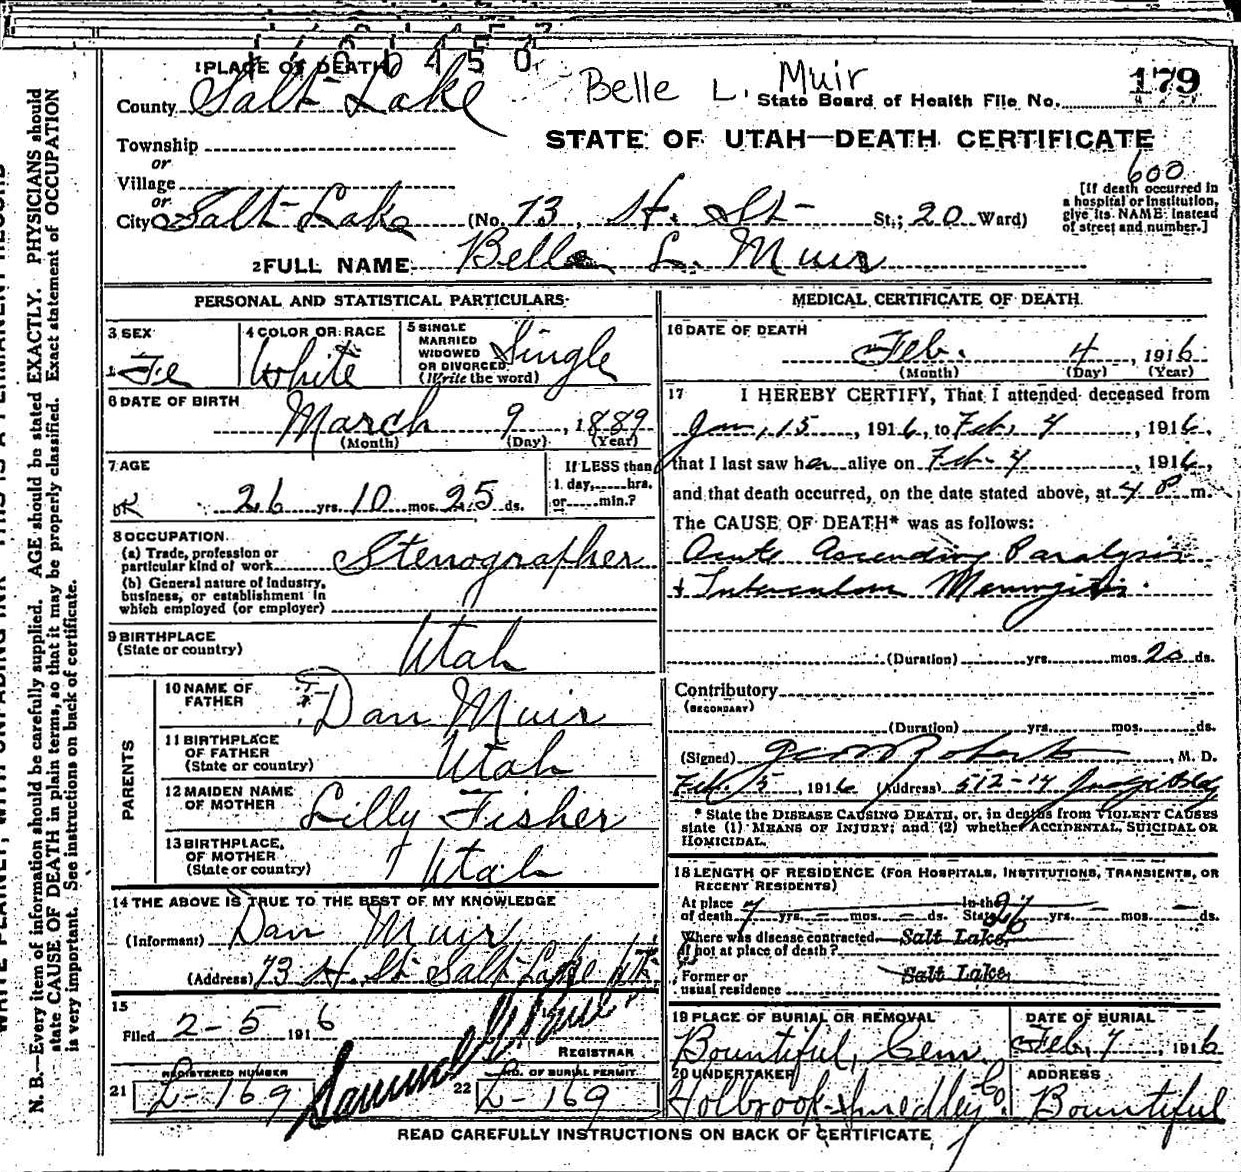 1601450
1 PLACE OF DEATH
Belle L. Muir
County Salt Lake
State Board of Health File No. 179
STATE OF UTAH—DEATH CERTIFICATE
Township
or
Village
or
City Salt Lake (No. 73, H. St St.; 20 Ward)
600
[If death occurred in
a hospital or institution,
give its NAME instead
of street and number.]
2 FULL NAME Belle L. Muir
PERSONAL AND STATISTICAL PARTICULARS
3 SEX
Fe
4 COLOR OR RACE
White
5 SINGLE
MARRIED
WIDOWED
OR DIVORCED
(Write the word)
Single
6 DATE OF BIRTH
March 9, 1889
(Month) (Day) (Year)
7 AGE
OK 26 yrs. 10 mos. 25 ds.
If LESS than
1 day, hrs.
or min.?
8 OCCUPATION
(a) Trade, profession or
particular kind of work Stenographer
(b) General nature of industry,
business, or establishment in
which employed (or employer)
9 BIRTHPLACE
(State or country)
Utah
PARENTS
10 NAME OF
FATHER
Dan Muir
11 BIRTHPLACE
OF FATHER
(State or country)
Utah
12 MAIDEN NAME
OF MOTHER
Lilly Fisher
13 BIRTHPLACE,
OF MOTHER
(State or country)
Utah
14 THE ABOVE IS TRUE TO THE BEST OF MY KNOWLEDGE
(Informant) Dan Muir
(Address) 73 H. St. Salt Lake Ut.
15
Filed 2-5 1916
REGISTRAR
21 REGISTERED NUMBER
L-169
22 NO. OF BURIAL PERMIT
L-169
MEDICAL CERTIFICATE OF DEATH
16 DATE OF DEATH
Feb. 4, 1916
(Month) (Day) (Year)
17 I HEREBY CERTIFY, That I attended deceased from
Jan. 15, 1916, to Feb. 4, 1916,
that I last saw her alive on Feb. 4, 1916,
and that death occurred, on the date stated above, at 4 P m.
The CAUSE OF DEATH* was as follows:
Acute Ascending Paralysis
+ Tubercular Meningitis.
(Duration) yrs. mos. 20 ds.
Contributory
(SECONDARY)
(Duration) yrs. mos. ds.
(Signed) Geo W Roberts, M. D.
Feb. 5, 1916 (Address) 512-14 Judge Bldg
* State the DISEASE CAUSING DEATH, or, in deaths from VIOLENT CAUSES
state (1) MEANS OF INJURY; and (2) whether ACCIDENTAL, SUICIDAL OR
HOMICIDAL.
18 LENGTH OF RESIDENCE (FOR HOSPITALS, INSTITUTIONS, TRANSIENTS, OR
RECENT RESIDENTS)
At place In the
of death 7 yrs. – mos. – ds. State 26 yrs. – mos. – ds.
Where was disease contracted Salt Lake
if not at place of death?
Former or
usual residence Salt Lake
19 PLACE OF BURIAL OR REMOVAL
Bountiful, Cem.
DATE OF BURIAL
Feb. 7, 1916
20 UNDERTAKER
Holbrook-Smedley Co.
ADDRESS
Bountiful
READ CAREFULLY INSTRUCTIONS ON BACK OF CERTIFICATE
N. B.—Every item of information should be carefully supplied. AGE should be stated EXACTLY. PHYSICIANS should
state CAUSE OF DEATH in plain terms, so that it may be properly classified. Exact statement of OCCUPATION
is very important. See instructions on back of certificate.